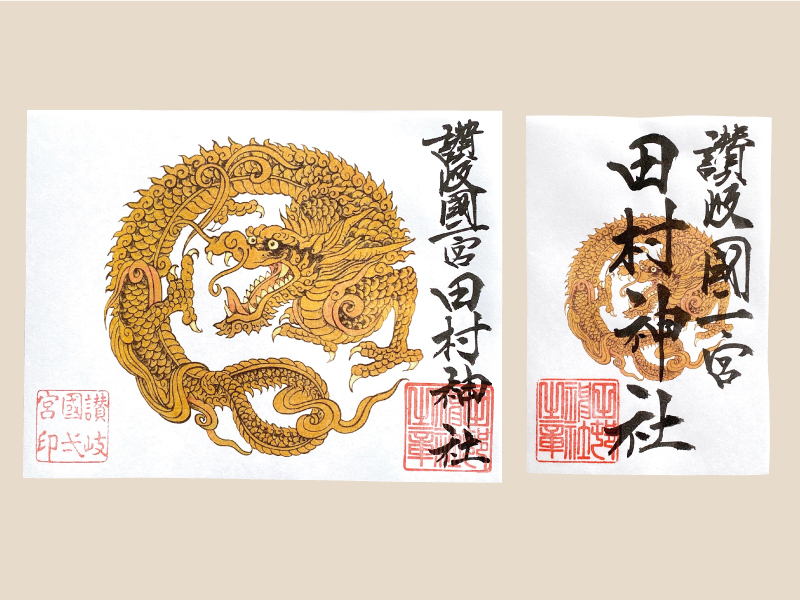 讃岐國一宮 田村神社
讃岐
國弌
宮印
田村神社之章
讃岐國一宮
田村神社
田村神社之章